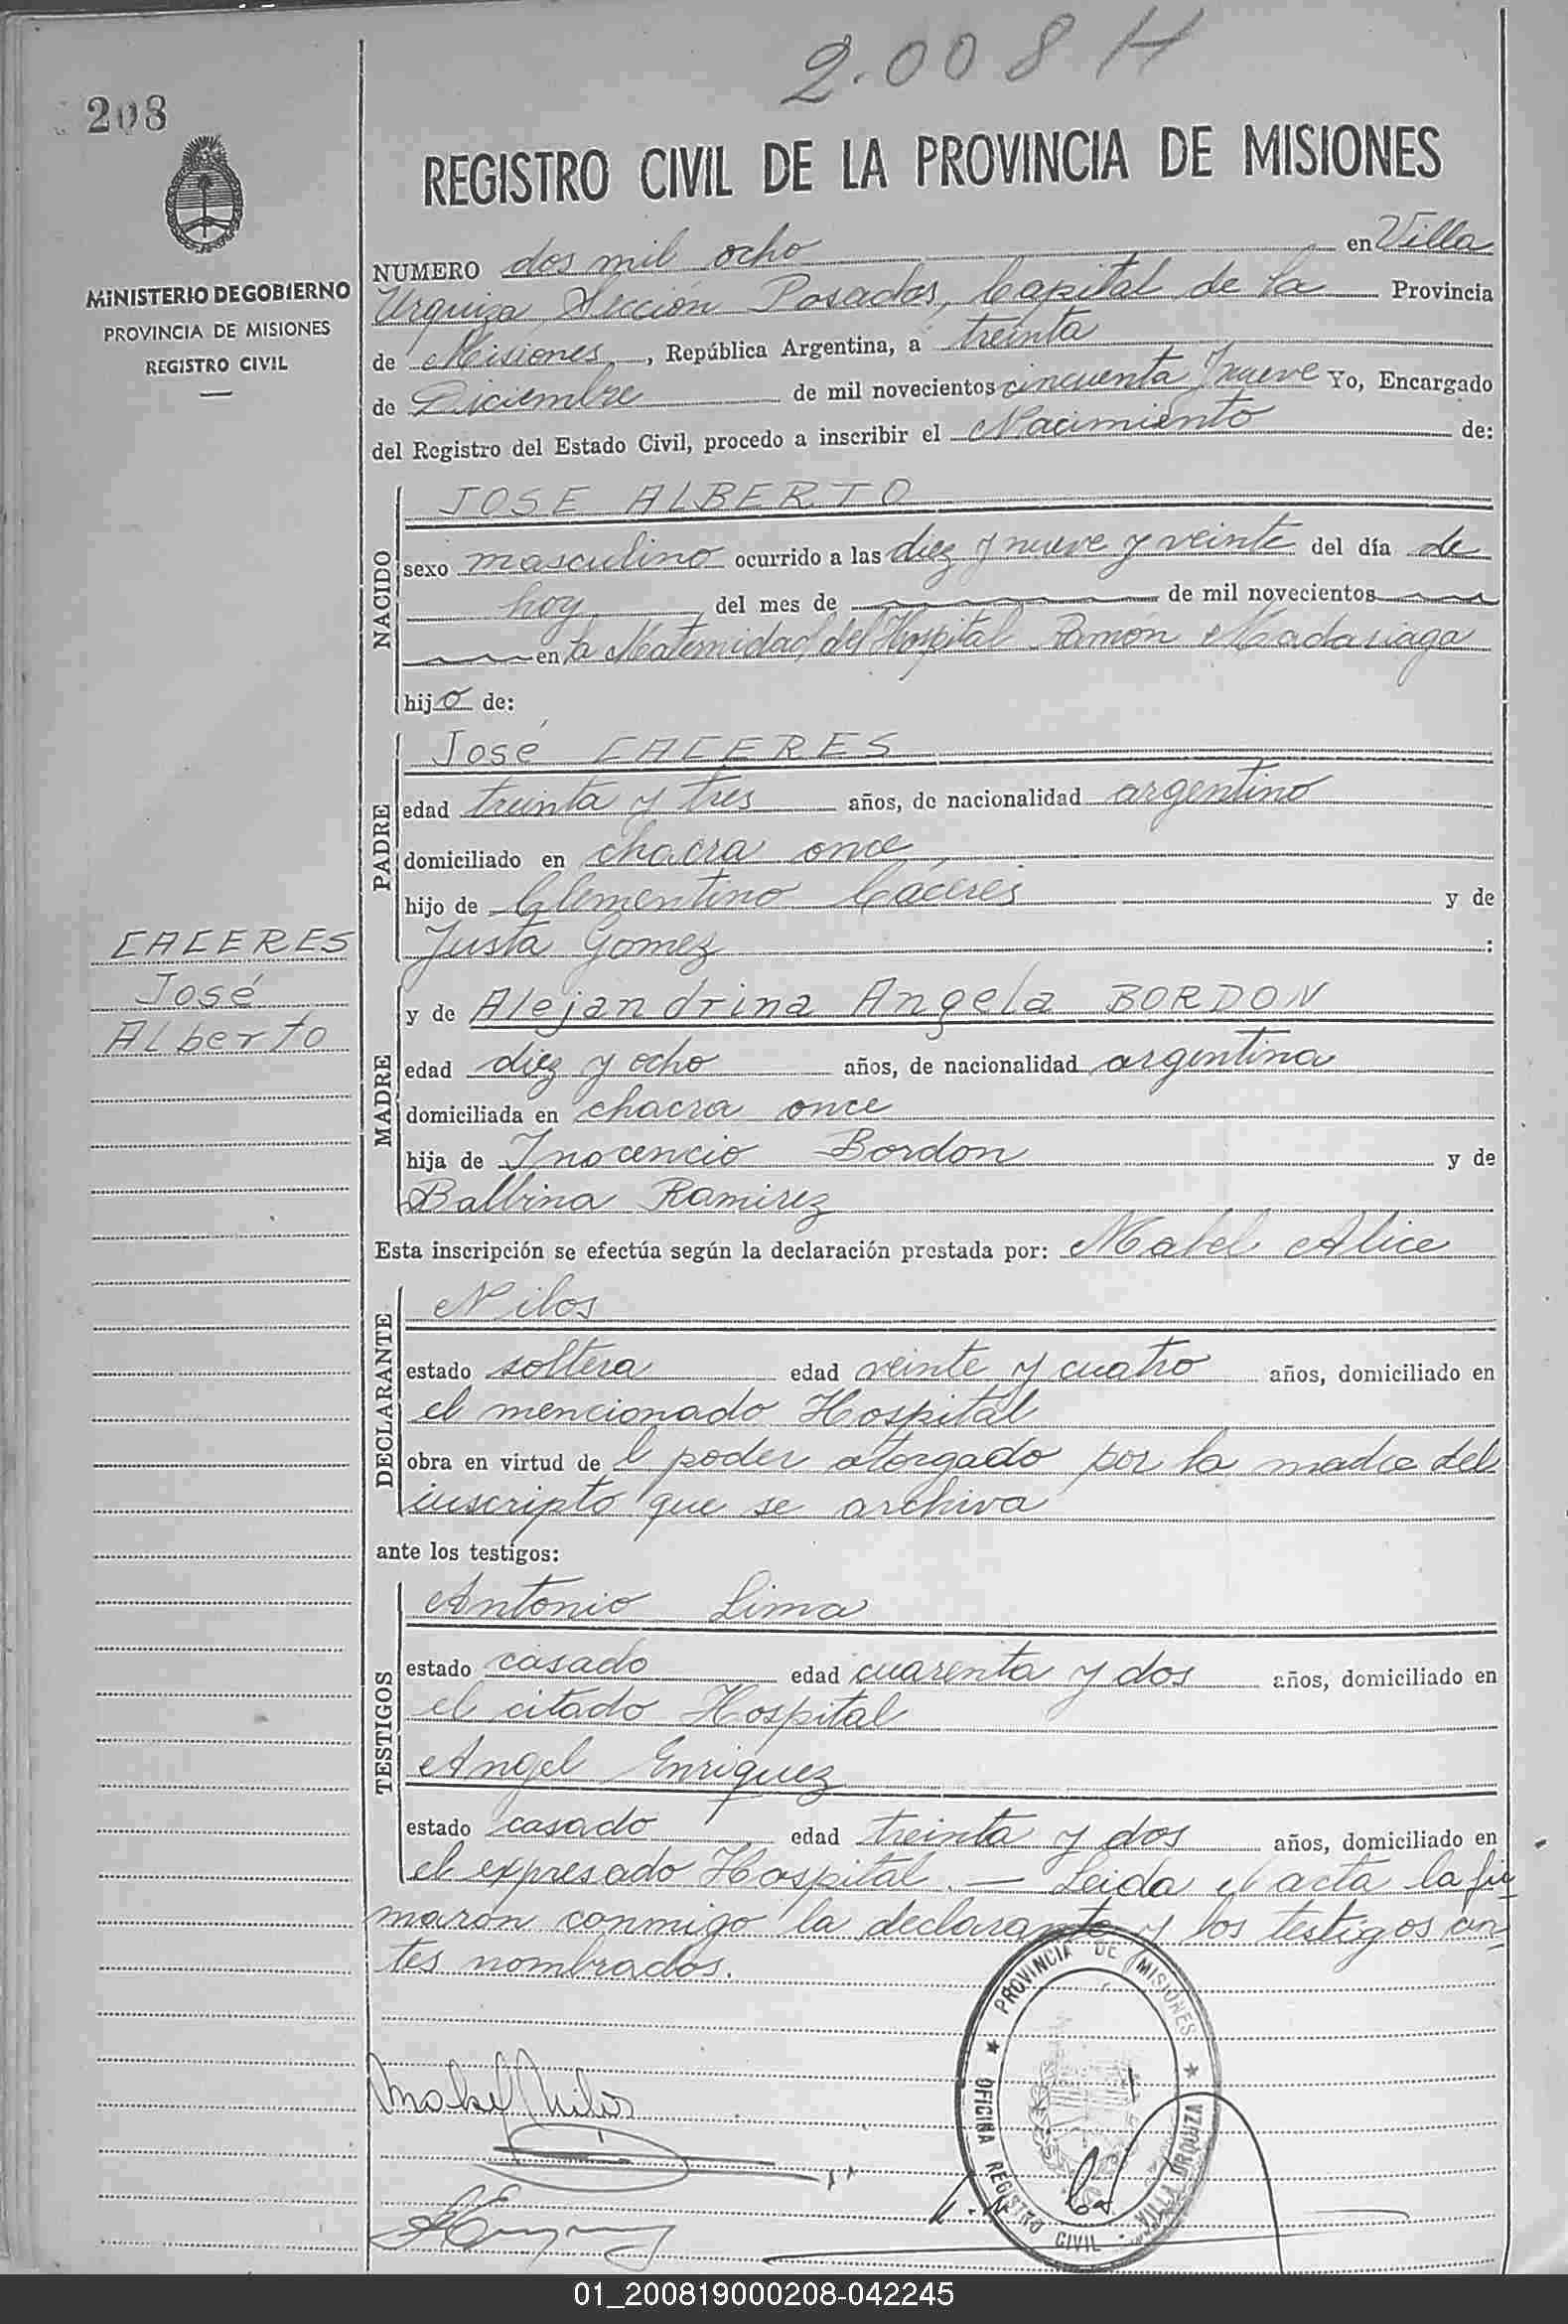 2.008 H
208
REGISTRO CIVIL DE LA PROVINCIA DE MISIONES
MINISTERIO DE GOBIERNO
PROVINCIA DE MISIONES
REGISTRO CIVIL
NUMERO dos mil ocho en Villa
Urquiza, Sección Posadas, Capital de la Provincia
de Misiones, República Argentina, a treinta
de Diciembre de mil novecientos cincuenta y nueve Yo, Encargado
del Registro del Estado Civil, procedo a inscribir el Nacimiento de:
NACIDO
JOSE ALBERTO
sexo masculino ocurrido a las diez y nueve y veinte del día de
hoy del mes de de mil novecientos
en la Maternidad del Hospital Ramón Madariaga
hijo de:
PADRE
José CACERES
edad treinta y tres años, de nacionalidad argentino
domiciliado en chacra once
hijo de Clementino Cáceres y de
Justa Gomez :
CACERES
José
Alberto
MADRE
y de Alejandrina Angela BORDON
edad diez y ocho años, de nacionalidad argentina
domiciliada en chacra once
hija de Inocencio Bordon y de
Balbina Ramirez
Esta inscripción se efectúa según la declaración prestada por: Mabel Alice
DECLARANTE
Nilos
estado soltera edad veinte y cuatro años, domiciliado en
el mencionado Hospital
obra en virtud de l poder otorgado por la madre del
inscripto que se archiva
ante los testigos:
TESTIGOS
Antonio Lima
estado casado edad cuarenta y dos años, domiciliado en
el citado Hospital
Angel Enriquez
estado casado edad treinta y dos años, domiciliado en
el expresado Hospital. — Leida el acta la fir
maron conmigo la declarante y los testigos an
tes nombrados.
PROVINCIA DE MISIONES
OFICINA REGISTRO CIVIL - VILLA URQUIZA
Mabel Nilos
01_200819000208-042245